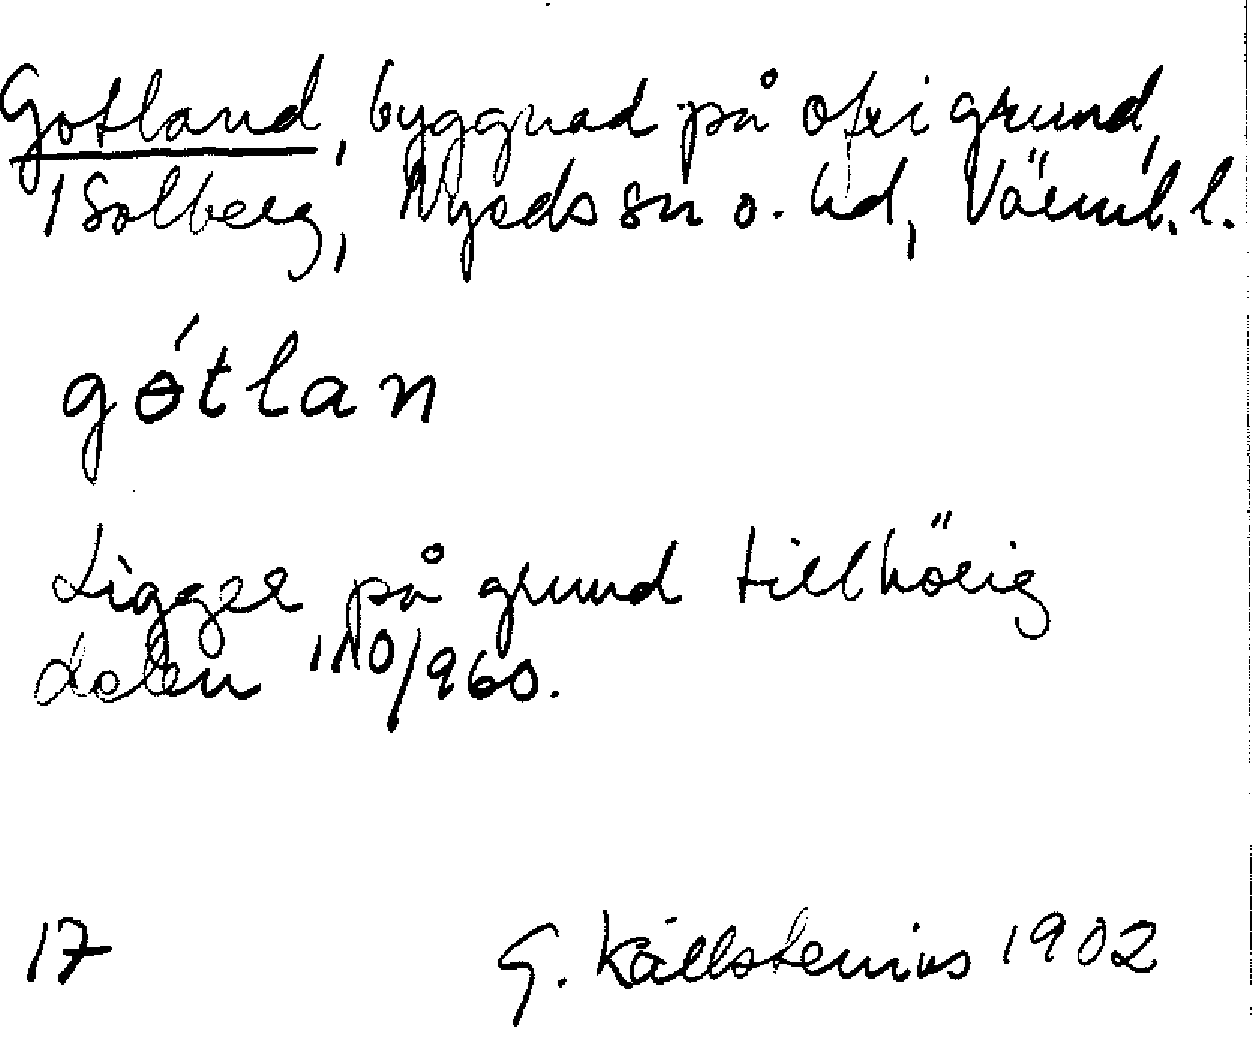 Gotland, byggnad på ofri grund,
1 Solberg, Nyeds sn o. hd, Värml. l.
gɵ́tlan
Ligger på grund tillhörig
delen 110/960.
17 G. Källstenius 1902